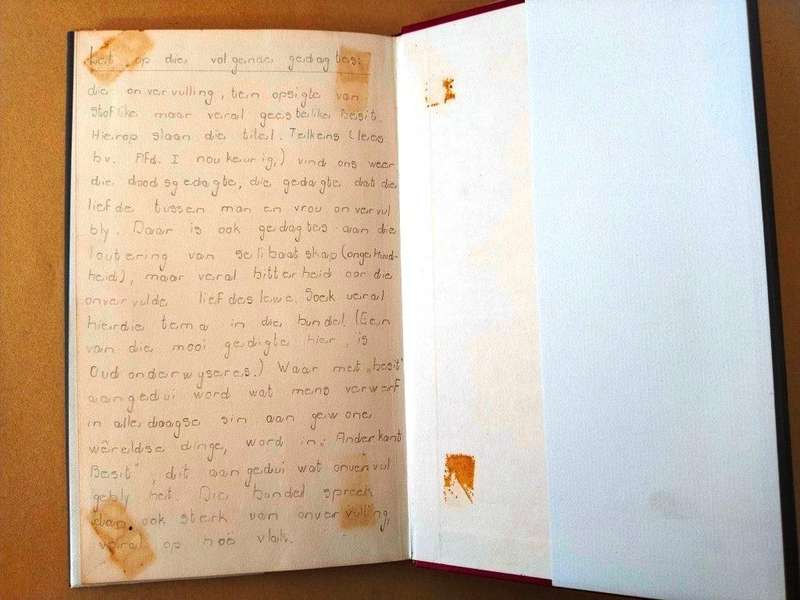 Let op die volgende gedagtes:
die onvervulling, ten opsigte van
stoflike maar veral geestelike besit.
Hierop slaan die titel. Telkens (lees
bv. Afd. I noukeurig,) vind ons weer
die doodsgedagte, die gedagte dat die
liefde tussen man en vrou onvervul
bly. Daar is ook gedagtes aan die
loutering van selibaatskap (ongehud-
heid), maar veral bitterheid oor die
onvervulde liefdeslewe. Soek veral
hierdie tema in die bundel. (Een
van die mooi gedigte hier, is
Oud onderwyseres.) Waar met „besit"
aangedui word wat mens verwerf
in alledaagse sin aan gewone
wêreldse dinge, word in: Anderkant
Besit", dit aangedui wat onvervul
gebly het. Die bundel spreek
dan ook sterk van onvervulling,
veral op hoë vlak.